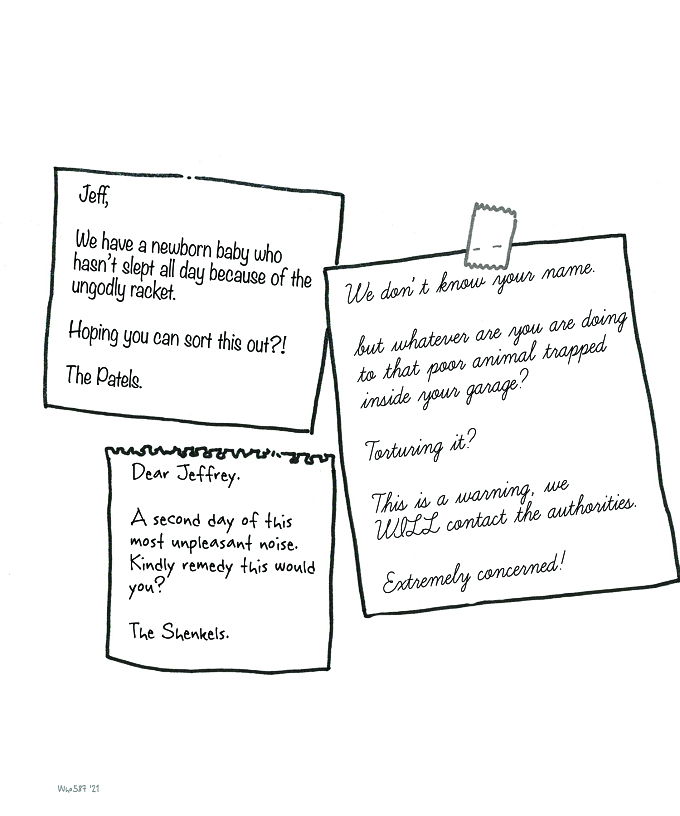 Jeff,
We have a newborn baby who
hasn't slept all day because of the
ungodly racket.
Hoping you can sort this out?!
The Patels.
We don't know your name.
but whatever are you are doing
to that poor animal trapped
inside your garage?
Torturing it?
This is a warning, we
WILL contact the authorities.
Extremely concerned!
Dear Jeffrey.
A second day of this
most unpleasant noise.
Kindly remedy this would
you?
The Shenkels.
'21